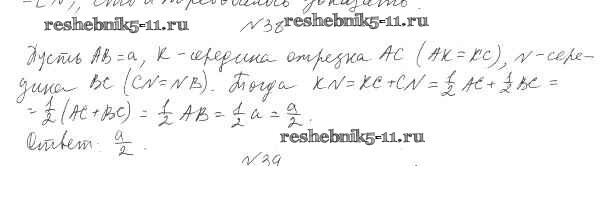 = CN), что и требовалось доказать.
reshebnik5-11.ru №38 reshebnik5-11.ru
Пусть AB=a, K-середина отрезка AC (AK=KC), N-сере-
дина BC (CN=NB). Тогда KN=KC+CN=1/2 AC+1/2 BC=
=1/2(AC+BC)=1/2 AB=1/2 a=a/2.
Ответ: a/2.
reshebnik5-11.ru
№39